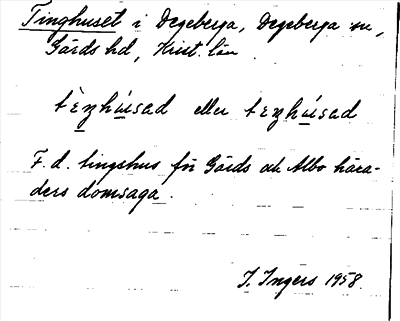 Tinghuset i Degeberga, Degeberga sn,
Gärds hd, Krist. län.
tèŋhúsad eller tèŋhúsad
F.d. tingshus för Gärds och Albo hära-
ders domsaga.
I. Ingers 1958.